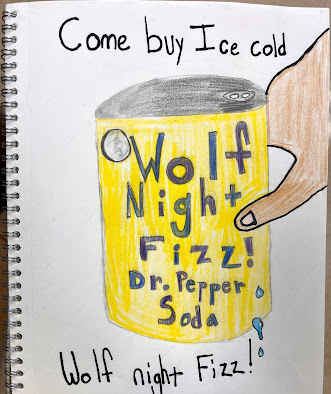 Come buy Ice cold
Wolf
Night
Fizz!
Dr. Pepper
Soda
Wolf night Fizz!